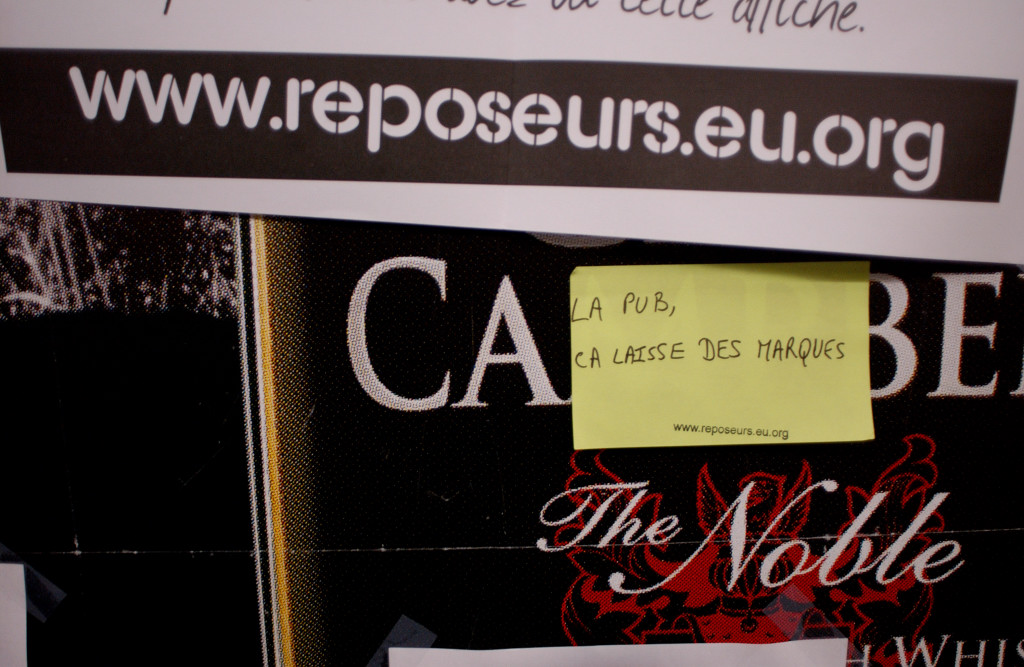 cette affiche.
www.reposeurs.eu.org
LA PUB,
CA LAISSE DES MARQUES
www.reposeurs.eu.org
The Noble